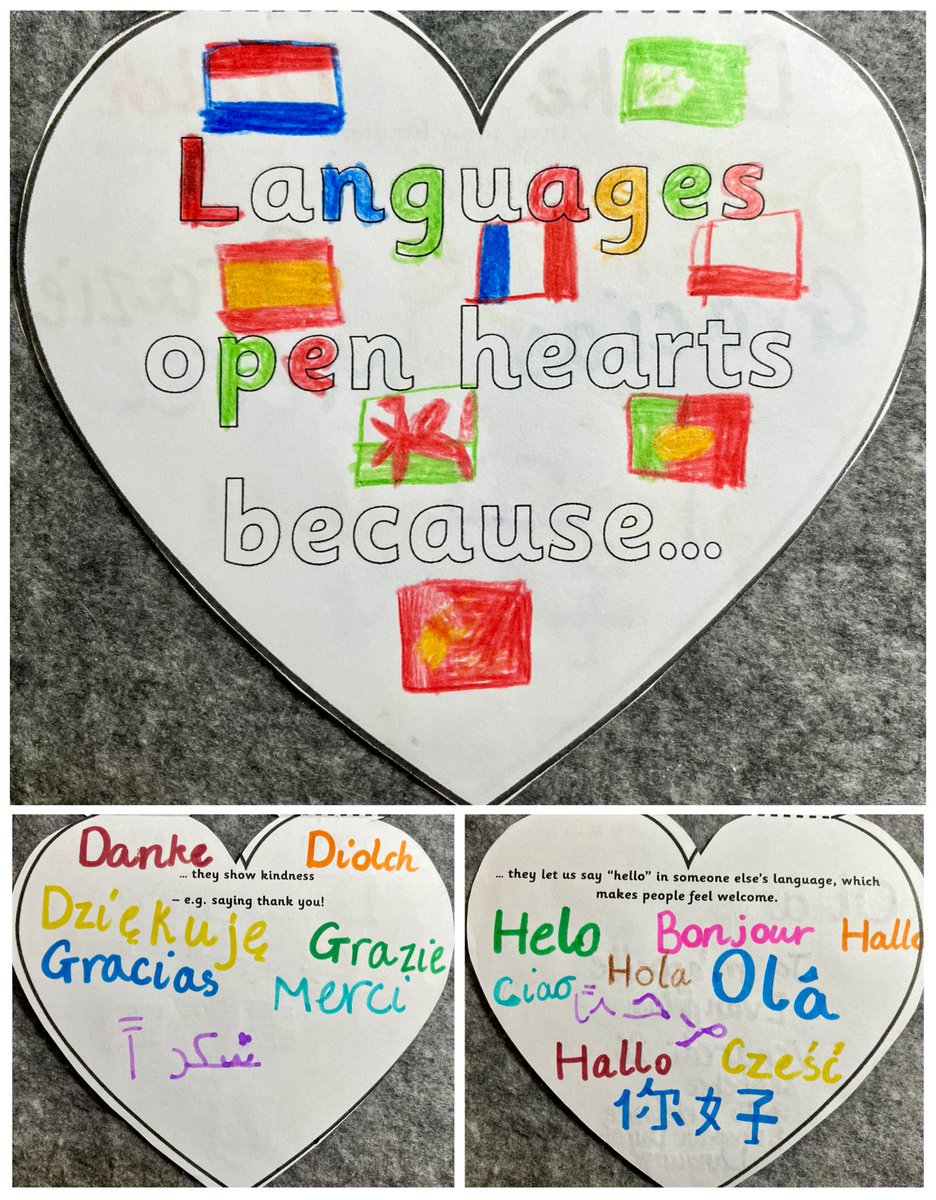 Languages
open hearts
because...
Danke Diolch
... they show kindness
– e.g. saying thank you!
Dziękuję
Grazie
Gracias
Merci
شكراً
... they let us say “hello” in someone else’s language, which
makes people feel welcome.
Helo Bonjour Hallo
Ciao Hola Olá
مرحباً
Hallo Cześć
你好